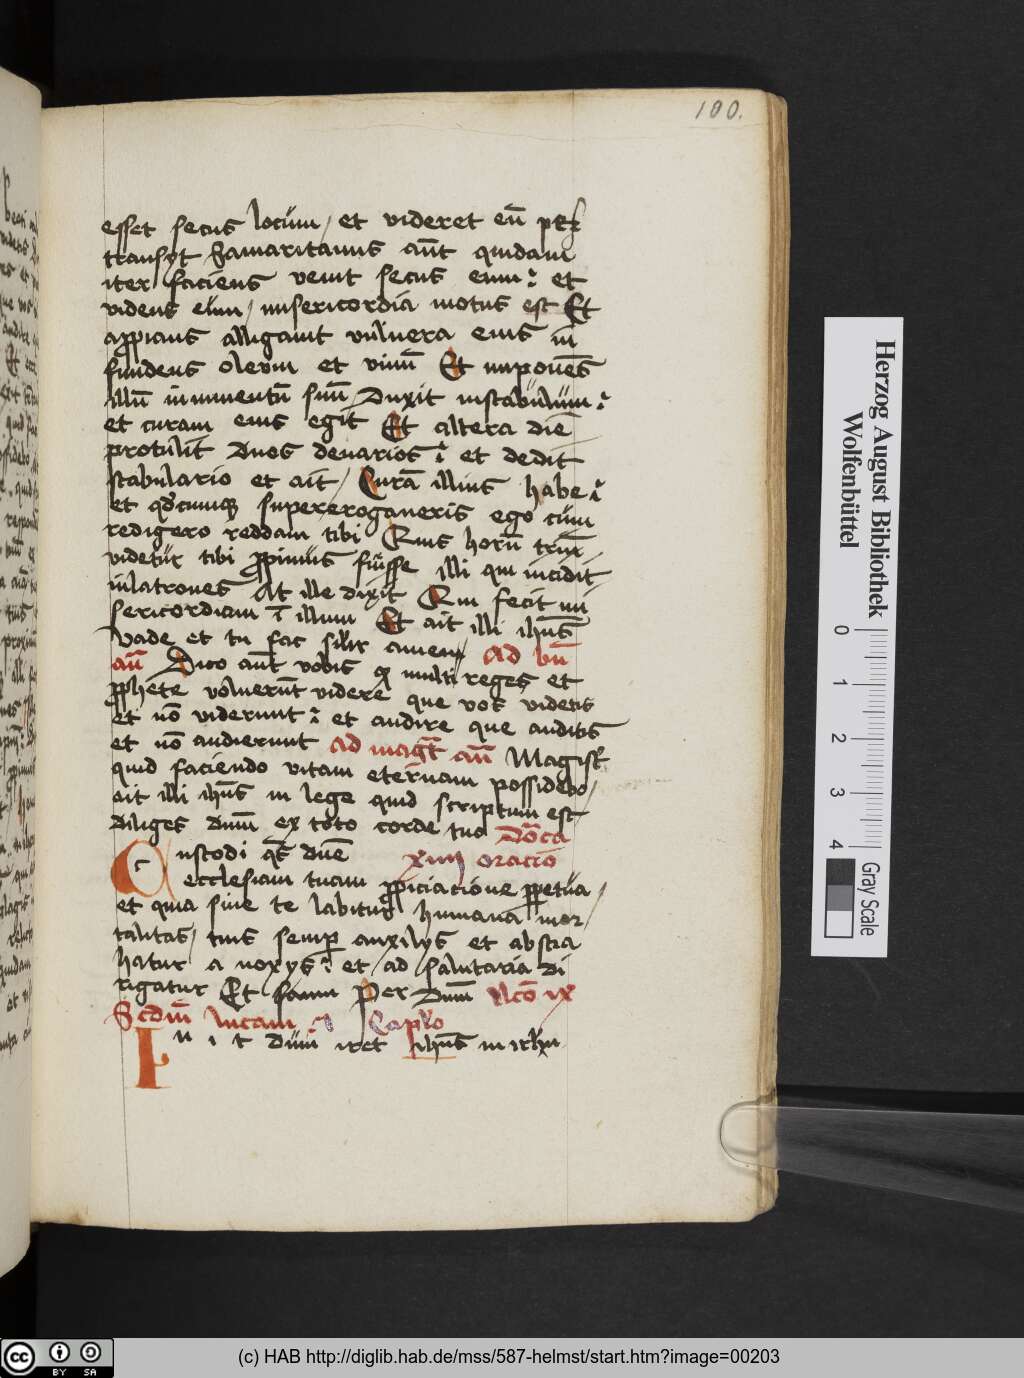 100.
esset secus locum / et videret eū
transyt Samaritanus aūt quidam
iter faciens venit secus eum et
videns eum / misericordia motus est Et
alligauit vulnera eius in
fundens oleum et vinū Et inponēs
illū in iumentū suū Duxit instabulum
et curam eius egit Et altera diē
protulit duos denarios et dedit
stabulario et ait / Curā illius habe
et supererogaueris ego cum
redigero reddam tibi horū triū
videtur tibi illi qui incidit
inlatrones At ille dixit Qui fecit mi
sericordiam ī illum Et ait illi ihūs
Vade et tu fac silīr amen Ad bn̄
an̄ Dico aūt vobis multi reges et
pphete voluerūt videre que vos videtis
et nō viderunt et audire que auditis
et nō audierunt ad magt̄ an̄ Magist
quid faciendo vitam eternam possidebo /
ait illi ihūs in lege quid scriptum est
diliges dnm̄ ex toto corde tuo Dōca
Custodi qs̄ dnē xiiij oracio
ecclesiam tuam ppiciacione ppetua /
et quia sine te labitur humana mor
talitas / tuis semp auxilijs et abstra
hatur a noxys et ad salutaria di
rigatur Et Per Dnm̄ lcō ix
Scdm̄ lucam
In it Dum iret ihūs in irlm
Herzog August Bibliothek
Wolfenbüttel
0 1 2 3 4
Gray Scale
cc BY SA
(c) HAB http://diglib.hab.de/mss/587-helmst/start.htm?image=00203